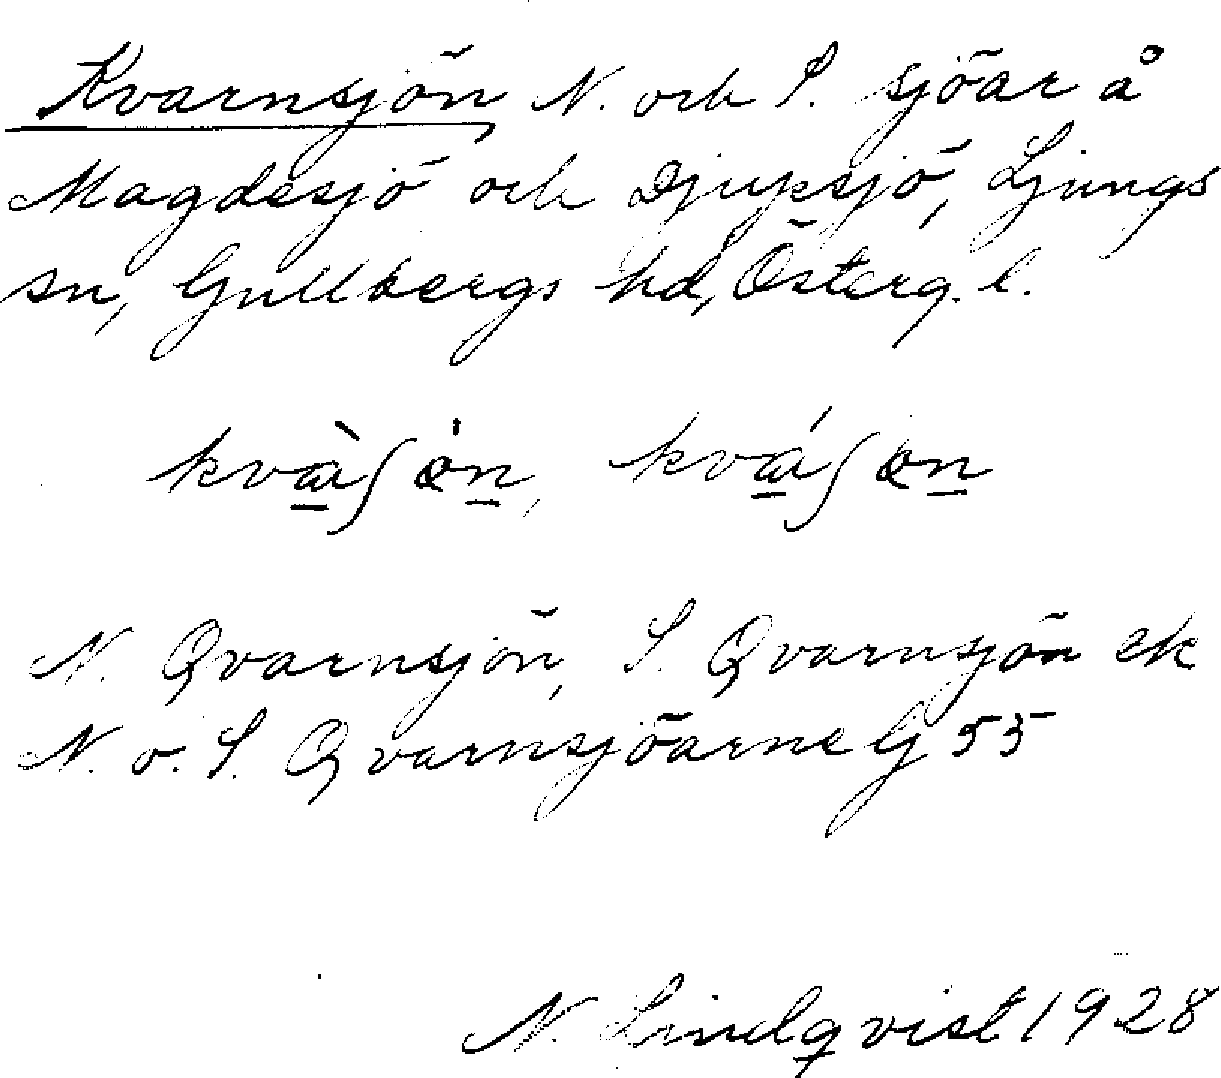 Kvarnsjön N. och S. sjöar å
Magdesjö och Djupsjö, Ljungs
sn, Gullbergs hd, Österg. l.
kvà̱ʃȯṉ, kvá̱ʃøṉ
N. Qvarnsjön, S. Qvarnsjön ek
N. o. S. Qvarnsjöarne G 55
N. Lindqvist 1928